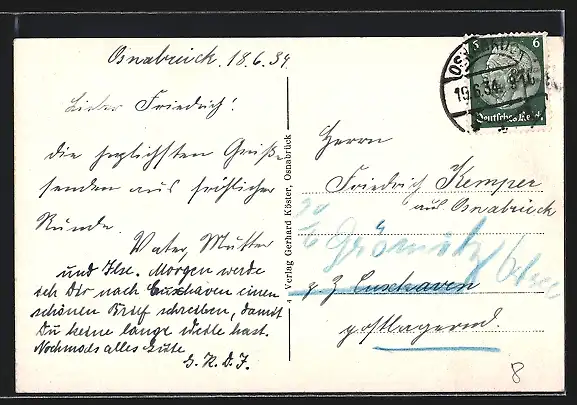 Osnabrück, 18.6.34
Lieber Friedrich!
die herzlichsten Grüße
senden aus fröhlicher
Runde.
Vater, Mutter
und Ilse. Morgen werde
ich Dir nach Cuxhaven einen
schönen Brief schreiben, damit
Du keine lange Weile hast.
Nochmals alles Gute
G. K. D. J.
4 Verlag Gerhard Köster, Osnabrück
6
Deutsches Reich
19.6.34
Herrn
Friedrich Kemper
aus Osnabrück
Grömitz
z Z Cuxhaven
postlagernd.
8